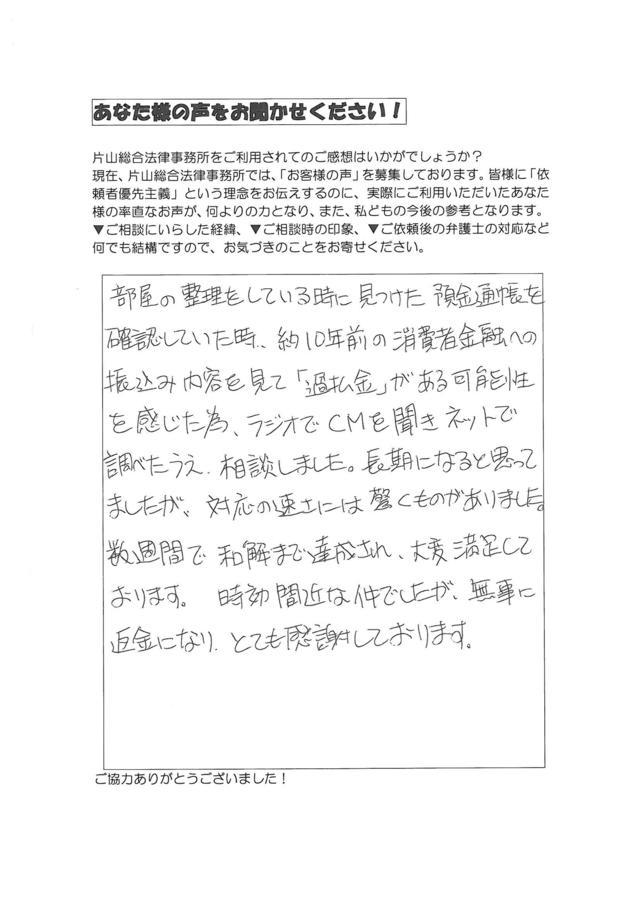 あなた様の声をお聞かせください！
片山総合法律事務所をご利用されてのご感想はいかがでしょうか？
現在、片山総合法律事務所では、「お客様の声」を募集しております。皆様に「依
頼者優先主義」という理念をお伝えするのに、実際にご利用いただいたあなた
様の率直なお声が、何よりの力となり、また、私どもの今後の参考となります。
▼ご相談にいらした経緯、▼ご相談時の印象、▼ご依頼後の弁護士の対応など
何でも結構ですので、お気づきのことをお寄せください。
部屋の整理をしている時に見つけた預金通帳を
確認していた時、約10年前の消費者金融への
振込み内容を見て「過払金」がある可能性
を感じた為、ラジオでCMを聞きネットで
調べたうえ、相談しました。長期になると思って
ましたが、対応の速さには驚くものがありました。
数週間で和解まで達成され、大変満足して
おります。 時効間近な件でしたが、無事に
返金になり、とても感謝しております。
ご協力ありがとうございました！